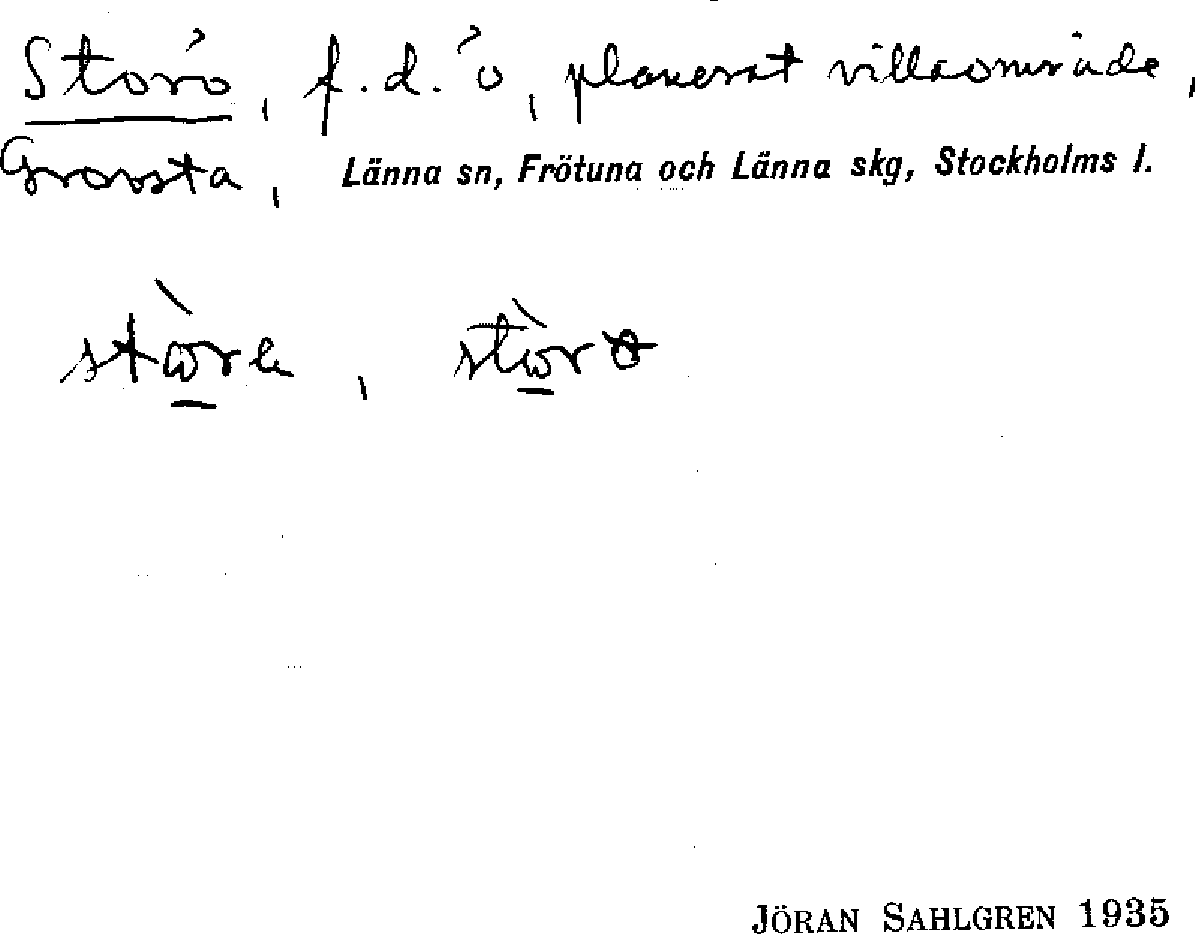 Storö, f.d. ö, planerat villaområde,
Grovsta, Länna sn, Frötuna och Länna skg, Stockholms l.
stòra, stòrö
JÖRAN SAHLGREN 1935